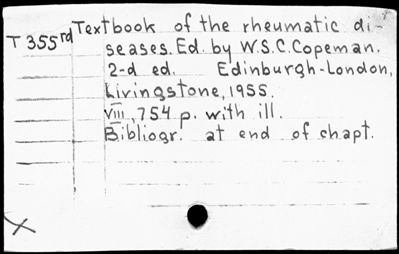 Textbook of the rheumatic di-
T 355rd
seases. Ed. by W.S.C.Copeman.
2-d ed. Edinburgh-London,
Livingstone, 1955.
VIII, 754 p. with ill.
Bibliogr. at end of chapt.